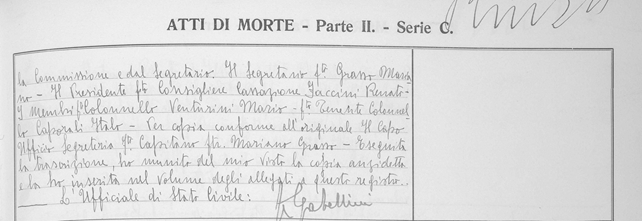 ATTI DI MORTE - Parte II. - Serie C.
la Commissione e dal Segretario. Il Segretario fto Grasso Maria
no - Il Presidente fto Consigliere Cassazione Faccini Renato -
I Membri fto Colonnello Venturini Mario - fto Tenente Colonnel
lo Caporali Italo - Per copia conforme all'originale Il Capo
Ufficio Segreteria fto Capitano fto Mariano Grasso - Eseguita
la trascrizione, ho munito del mio visto la copia anzidetta
e la ho inserita nel volume degli allegati a questo registro.
L'Ufficiale di Stato Civile: Gabellini